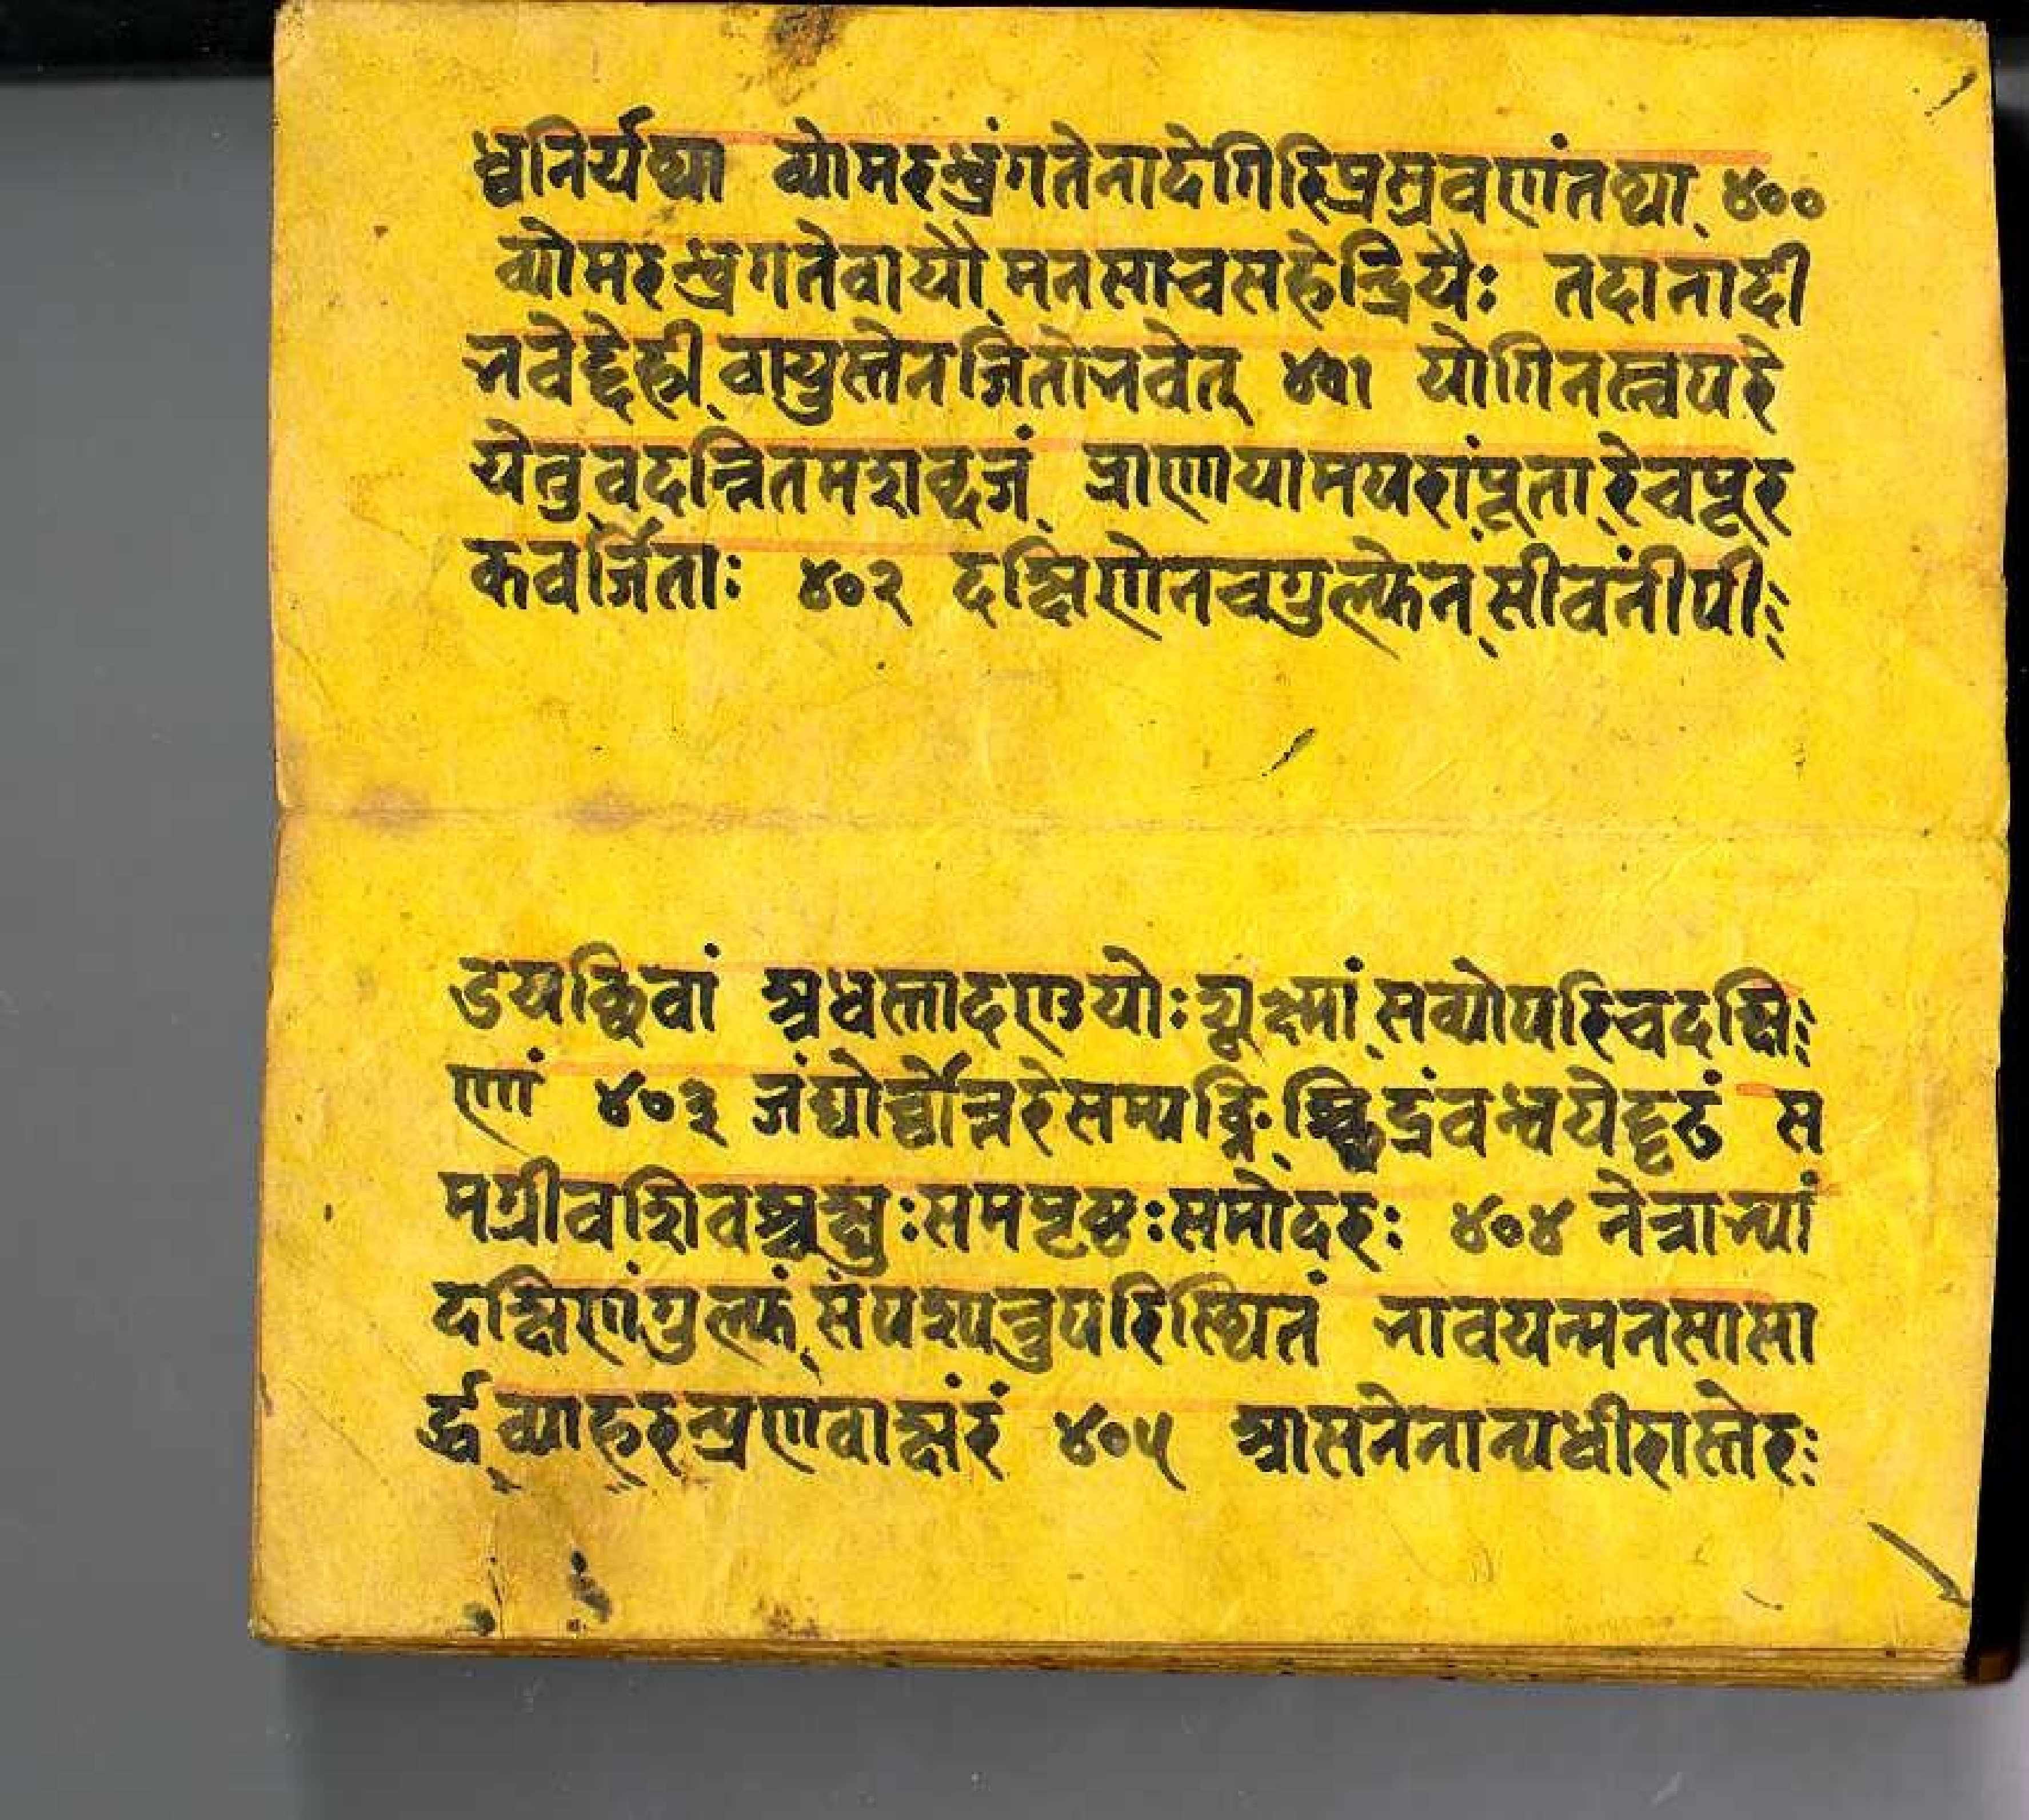 ध्वनिर्यथा व्योमरन्ध्रंगतेनादेगिरिप्रस्रवणंतथा ४००
व्योमरन्ध्रगतेवायौ मनसाचसहेन्द्रियैः तदानादी
भवेद्देही वायुस्तेनजितोभवेत् ४०१ योगिनस्त्वपरे
येतुवदन्तितमशब्दजं प्राणायामपरांपूता रेचपूर
कवर्जिताः ४०२ दक्षिणेनचगुल्फेन सीवनींपी
डयच्छिवां अधस्तादण्डयोः सूक्ष्मां सव्योपरिचदक्षि
णां ४०३ जंघोर्व्वोन्तरेसम्यक् निच्छिद्रंबन्धयेद्दृढं स
मग्रीवशिवस्कन्धः समपृष्ठः समोदरः ४०४ नेत्राभ्यां
दक्षिणंगुल्फं संपश्यन्नुपरिस्थितं भावयन्मनसासा
र्द्ध व्याहरन्प्रणवाक्षंरं ४०५ आसनेनान्यधीरास्तेर